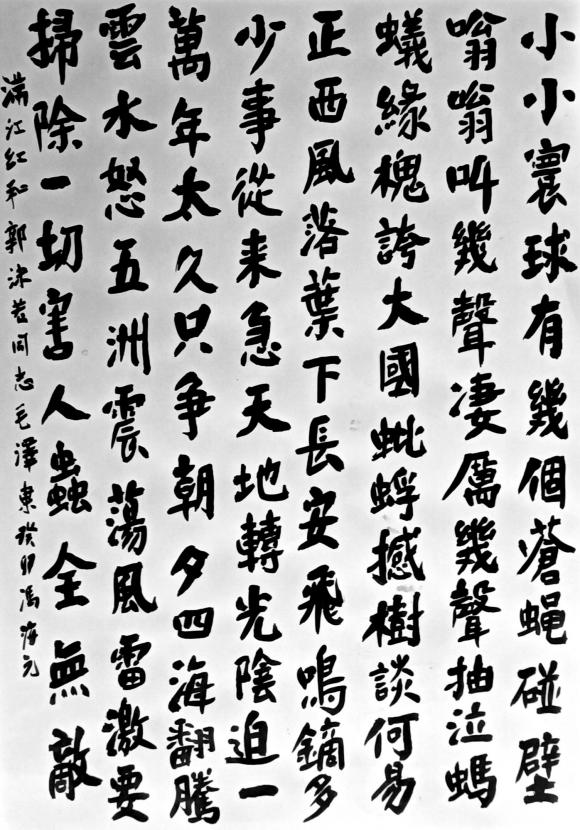 小小寰球有幾個蒼蠅碰壁
嗡嗡叫幾聲凄厲幾聲抽泣螞
蟻緣槐誇大國蚍蜉撼樹談何易
正西風落葉下長安飛鳴鏑多
少事從来急天地轉光陰迫一
萬年太久只争朝夕四海翻騰
雲水怒五洲震蕩風雷激要
掃除一切害人蟲全無敵
满江红和郭沫若同志毛澤東癸卯馮海元